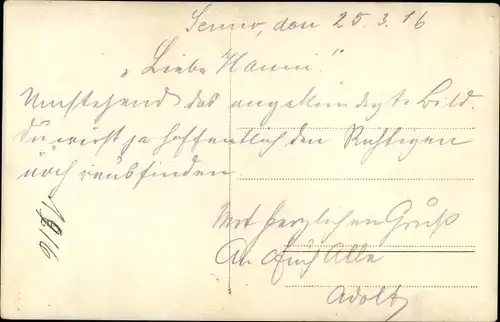 Senne, den 25.3.16
„Liebe Hanni!"
Umstehend das angekündigte Bild.
Du wirst ja hoffentlich den Richtigen
noch rausfinden.
Mit herzlichen Gruß
An Euch Alle
Adolf
1916